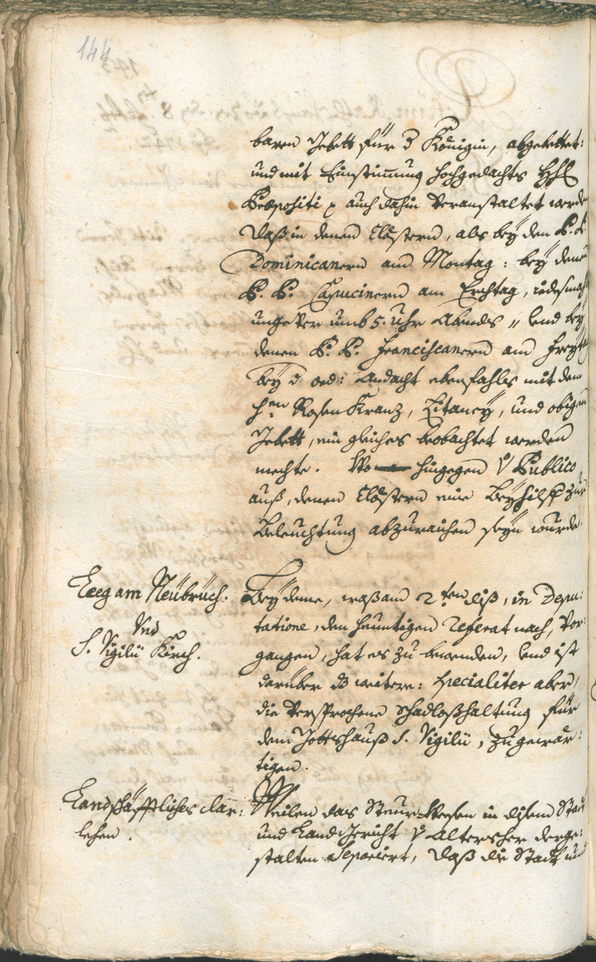 144
baren Gebett für d Königin, abgebettet:
und mit Einstimung hochgedachts H
Præpositi p auch dahin Veranstaltet werde
daß in denen Clöstern, als bey den P. P.
Dominicanern am Montag: bey denen
P. P. Capucinern am Erchtag, iedesmahl
ungever umb 5. Uhr Abends, und bey
denen P. P. Franciscanern am Freytag
bey d ord: Andacht ebenfahls mit dem
h:en Rosen Kranz, Litaney, und obigem
Gebett, ein gleiches beobachtet werden
mechte. Wo hingegen Publico
auß, denen Clöstern eine Beyhilf zur
Beleuchtung abzuraichen seyn wurde.
Leeg am Neübruch.
Und
S. Vigilii Kirch.
Bey deme, waß am 2ten diß, in Depu:
tatione, den heuntigen Referat nach, Vor
gangen, hat es zu bewenden, und ist
darüber d weitere: specialiter aber,
die Versprochene schadloßhaltung für
dem Gottshauß S. Vigilii, zugewar:
tigen.
Landschäfftliches dar:
lehen.
Weilen das Steur-Wesen in disem Statt
und Landgericht Altershero derge:
stalten separiert, daß die Statt und